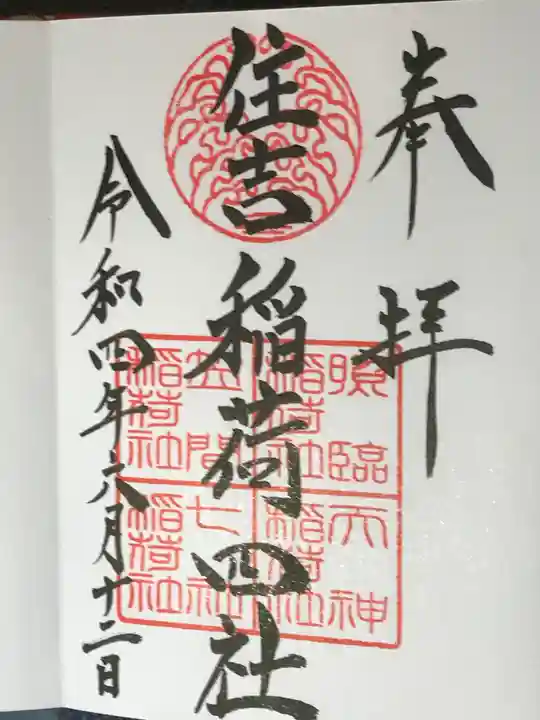 奉拝
住吉稲荷四社
令和四年六月十二日
天神
稲荷社
七社
稲荷社